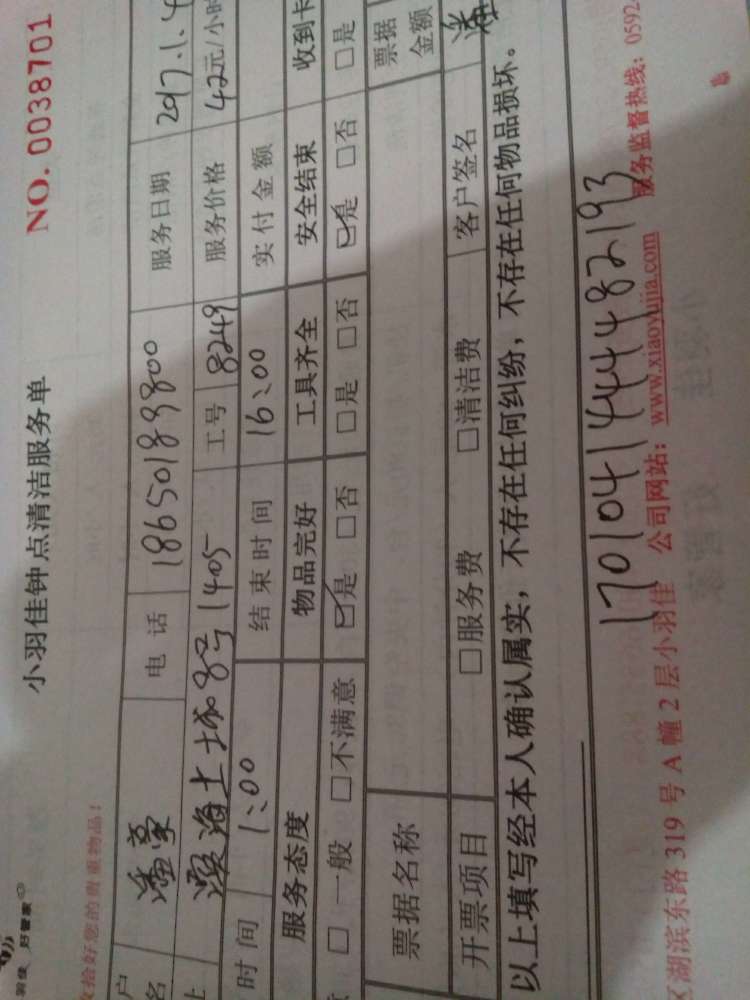 羽佳 好管家
小羽佳钟点清洁服务单 NO. 0038701
收拾好您的贵重物品!
户名 潘 电话 18650189800 服务日期 2017.1.4
8号1405 工号 8249 服务价格 42元/小时
时间 1:00 结束时间 16:00 实付金额
服务态度 物品完好 工具齐全 安全结束 收到卡
□一般 □不满意 ☑是 □否 □是 □否 ☑是 □否 □是
票据名称 票据金额
开票项目 □服务费 □清洁费 客户签名 潘
以上填写经本人确认属实,不存在任何纠纷,不存在任何物品损坏。
17010414444482193
区湖滨东路 319 号 A 幢 2 层小羽佳 公司网站:www.xiaoyujia.com 服务监督热线:0592